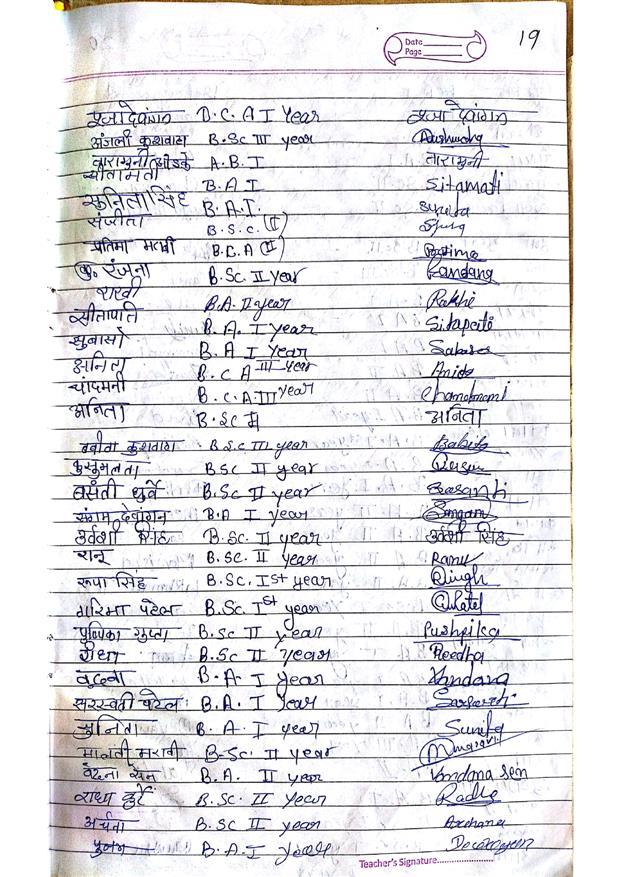 19
Date
Page
पूजा देवांगन B.C.A I Year पूजा देवांगन
अंजली कुशवाहा B.Sc III year
तारामुनी ओडके A.B.I तारामुनी
सीतामती B.A I Sitamati
सुनिता सिंह B.A.I. Sunita
संजीता B.S.C. (II)
प्रतिमा मरावी B.C.A (II)
कु. रंजना B.Sc. II year
राखी B.A. II year Rakhi
सीतापति B.A. I year Sitapati
सुबासो B.A I Year
अनिता B.C A III year Anita
चांदमनी B.C.A. III year Chandmani
अनिता B.Sc II अनिता
बबीता कुशवाहा B.S.C III year Babita
कुसुमलता B.Sc II year
बसंती धुर्वे B.Sc II year Basanti
संगम देवांगन B.A I year Sangam
उर्वशी सिंह B.Sc. II year उर्वशी सिंह
रानू B.SC. II year Ranu
रूपा सिंह B.Sc. Ist year Singh
गरिमा पटेल B.Sc. Ist year Patel
पुष्पिका गुप्ता B.Sc II year Pushpika
रीधा B.Sc II year Reedha
वंदना B.A I year Vandana
सरस्वती पटेल B.A. I Year
सुनिता B.A. I year Sunita
मालती मरावी B.Sc. II year
वंदना सेन B.A. II year Vandana Sen
राधा B.Sc. II Year Radhe
अर्चना B.Sc II year Archana
पुनम B.A. I year
Teacher's Signature